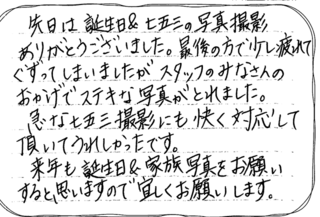 先日は誕生日&七五三の写真撮影
ありがとうございました。最後の方で少し疲れて
ぐずってしまいましたがスタッフのみなさんの
おかげでステキな写真がとれました。
急な七五三撮影にも快く対応して
頂いてうれしかったです。
来年も誕生日&家族写真をお願い
すると思いますので宜しくお願いします。